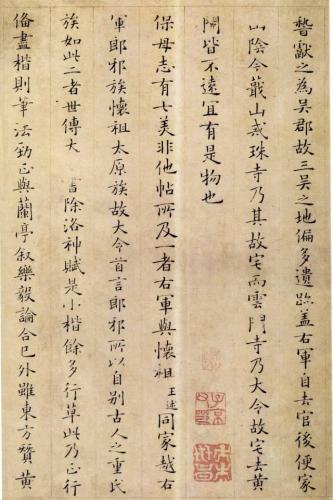 獻之為吳郡故三吳之地偏多遺跡蓋右軍自去官後便家
山陰今蕺山戒珠寺乃其故宅而雲門寺乃大令故宅去黃
閍皆不遠宜有是物也
保母志有七美非他帖所及一者右軍與懷祖王述同家越右
軍郎邪族懷祖太原族故大令首言郎邪所以自別古人之重氏
族如此二者世傳大 書除洛神賦是小楷餘多行草此乃正行
俻盡楷則筆法勁正與蘭亭敘樂毅論合已外雖東方贊黃